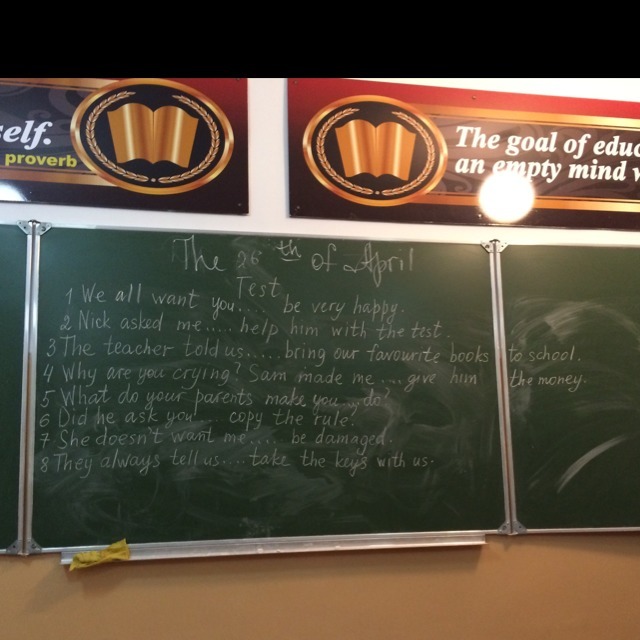 self.
proverb
The goal of educ
an empty mind w
The 26th of April
Test.
1 We all want you.... be very happy.
2 Nick asked me..... help him with the test.
3 The teacher told us..... bring our favourite books to school.
4 Why are you crying? Sam made me .... give him the money.
5 What do your parents make you ... do?
6 Did he ask you... copy the rule?
7 She doesn't want me.... be damaged.
8 They always tell us.... take the keys with us.